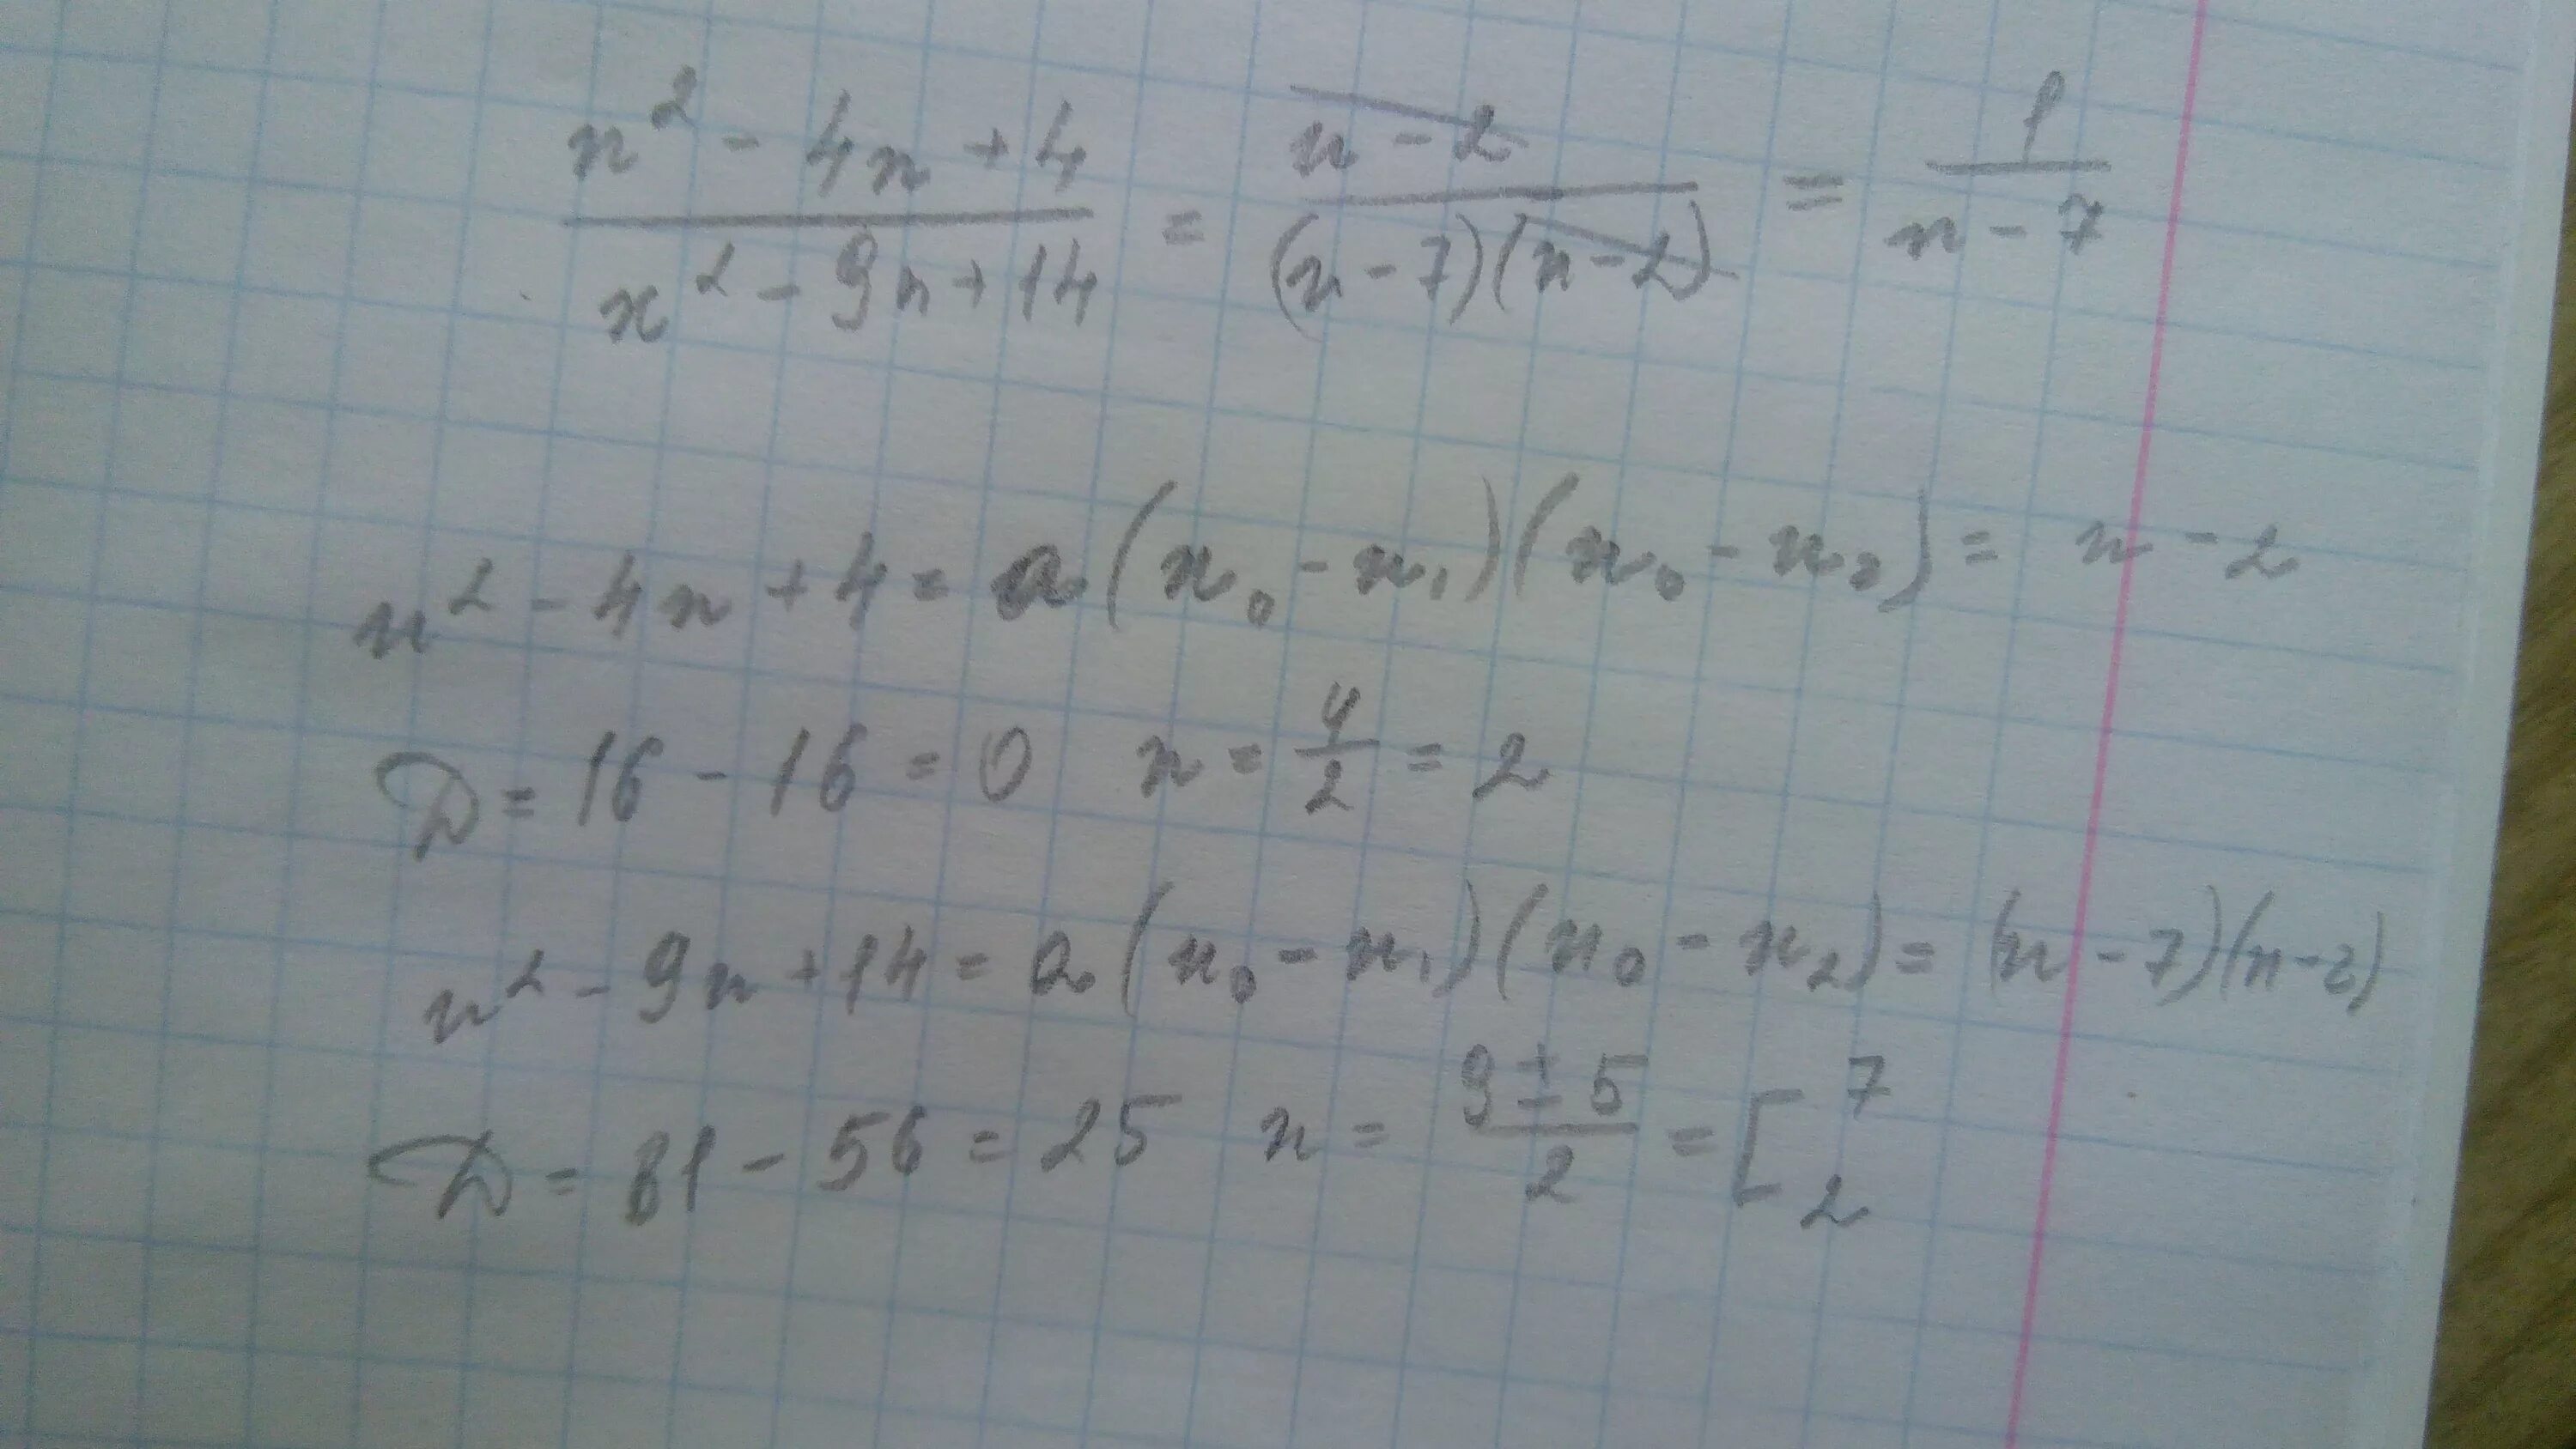 x² - 4x + 4 / x² - 9x + 14 = x - 2 / (x - 7)(x - 2) = 1 / x - 7
x² - 4x + 4 = a(x₀ - x₁)(x₀ - x₂) = x - 2
D = 16 - 16 = 0 x = 4/2 = 2
x² - 9x + 14 = a(x₀ - x₁)(x₀ - x₂) = (x - 7)(x - 2)
D = 81 - 56 = 25 x = 9 ± 5 / 2 = [ 7 2